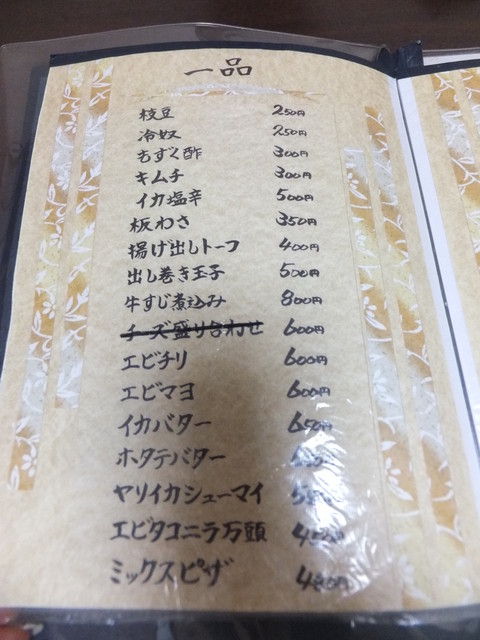 一品
枝豆 250円
冷奴 250円
もずく酢 300円
キムチ 300円
イカ塩辛 500円
板わさ 350円
揚げ出しトーフ 400円
出し巻き玉子 500円
牛すじ煮込み 800円
チーズ盛り合わせ 600円
エビチリ 600円
エビマヨ 600円
イカバター 650円
ホタテバター
ヤリイカシューマイ
エビタコニラ万頭
ミックスピザ 480円